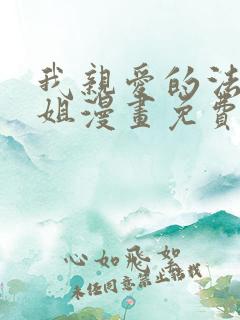 我親愛的法
姐漫畫免費
心如飛絮
未经同意禁止转载